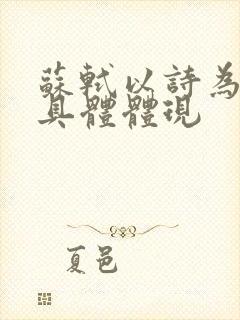 蘇軾以詩為
具體體現
夏邑